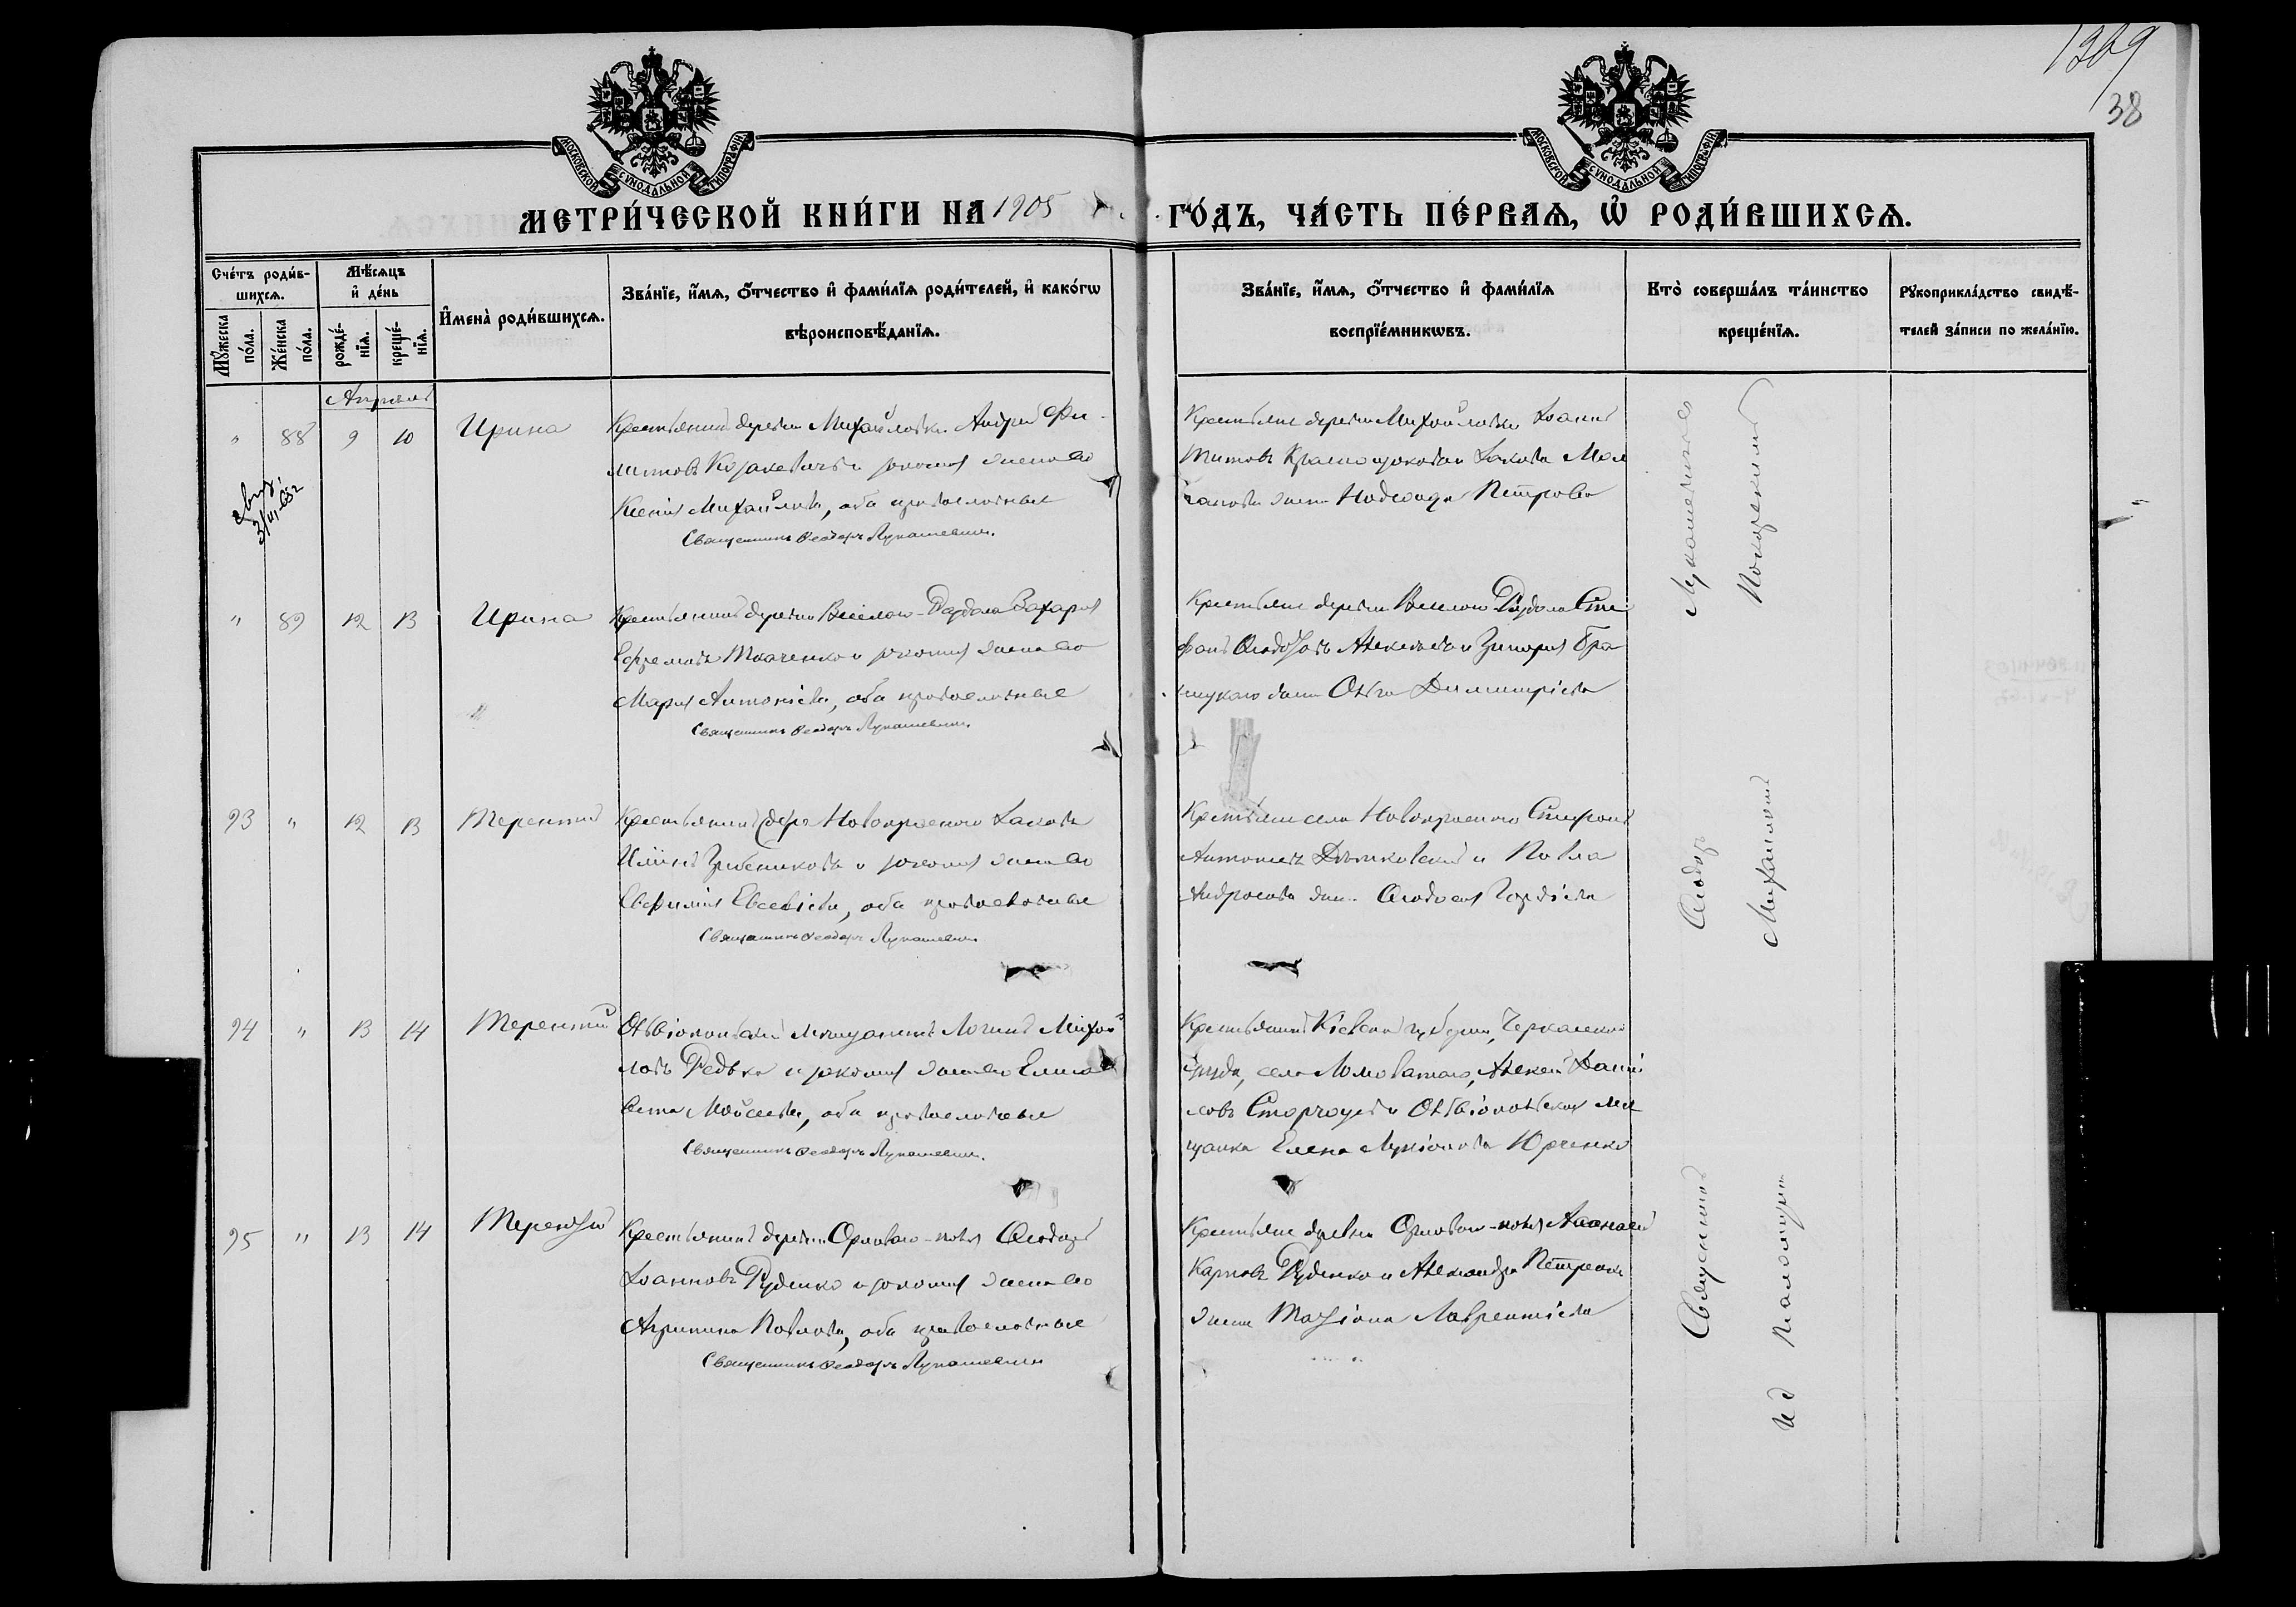 1369
38
МОСКОВСКОЙ СУНОДАЛЬНОЙ ТИПОГРАФІИ
МОСКОВСКОЙ СУНОДАЛЬНОЙ ТИПОГРАФІИ
МЕТРИ́ЧЕСКОЙ КНИ́ГИ НА 1905
ГО́ДЪ, ЧА́СТЬ ПЕ́РВАѦ, Ѡ РОДИ́ВШИХСѦ.
Сче́тъ роди́в-
шихсѧ.
Мꙋ́жеска по́ла.
Же́нска по́ла.
Мѣ́сѧцъ
и҆ де́нь
рожде́-
нїѧ.
креще́-
нїѧ.
И҆мена̀ роди́вшихсѧ.
Зва́нїе, и҆́мѧ, ѻ҆́тчество и҆ фами́лїѧ роди́телей, и҆ како́гѡ
вѣроисповѣ́данїѧ.
Зва́нїе, и҆́мѧ, ѻ҆́тчество и҆ фами́лїѧ
воспрїе́мникѡвъ.
Кто̀ соверша́лъ та́инство
креще́нїѧ.
Рꙋкоприкла́дство свидѣ́-
телей за́писи по жела́нїю.
Апрѣль
" 88 9 10 Ирина
Крестьянинъ деревни Михайловки Андрей Фи-
липповъ Козакевичъ и законная жена его
Ксенія Михайлова, оба православные
Священникъ Ѳеодоръ Лукашевичъ.
Крестьяне деревни Михайловки Іоаннъ
Титовъ Краснощоковъ и Іакова Мол
чанова жена Надежда Петрова
" 89 12 13 Ирина
Крестьянинъ деревни Веселаго-Раздола Захарія
Ефремовъ Ткаченко и законная жена его
Марія Антоніева, оба православные
Священникъ Ѳеодоръ Лукашевичъ.
Крестьяне деревни Веселаго Раздола Сте
фанъ Алексѣевъ и Григорія
жена Ольга Димитріева
93 " 12 13 Терентій
Крестьянинъ села Новокраснаго Іаковъ
Иліинъ Гребенниковъ и законная жена его
Евфимія Евсевіева, оба православные
Священникъ Ѳеодоръ Лукашевичъ.
Крестьяне села Новокраснаго Стефанъ
Антоновъ и Павла
Андросова жена Ѳеодосія Гордіева
94 " 13 14 Терентій
Ольвіопольскій мѣщанинъ Логинъ Михай
ловъ Редька и законная жена его Елиса
вета Мойсеева, оба православные
Священникъ Ѳеодоръ Лукашевичъ.
Крестьянинъ Кіевской губерніи, Черкаскаго
уѣзда, села Ломоватаго, Алексѣй Даніи
ловъ и Ольвіопольская мѣ
щанка Елена Лукіанова Юрченко
95 " 13 14 Терентій
Крестьянинъ деревни Ѳеодоръ
Іоанновъ Руденко и законная жена его
Агрипина Павлова, оба православные
Священникъ Ѳеодоръ Лукашевичъ
Крестьяне деревни Аѳанасій
Карповъ Руденко и Александра Петренко
жена Татіана Лаврентіева
Священникъ Ѳеодоръ Лукашевичъ
и д Псаломщика Михаилъ